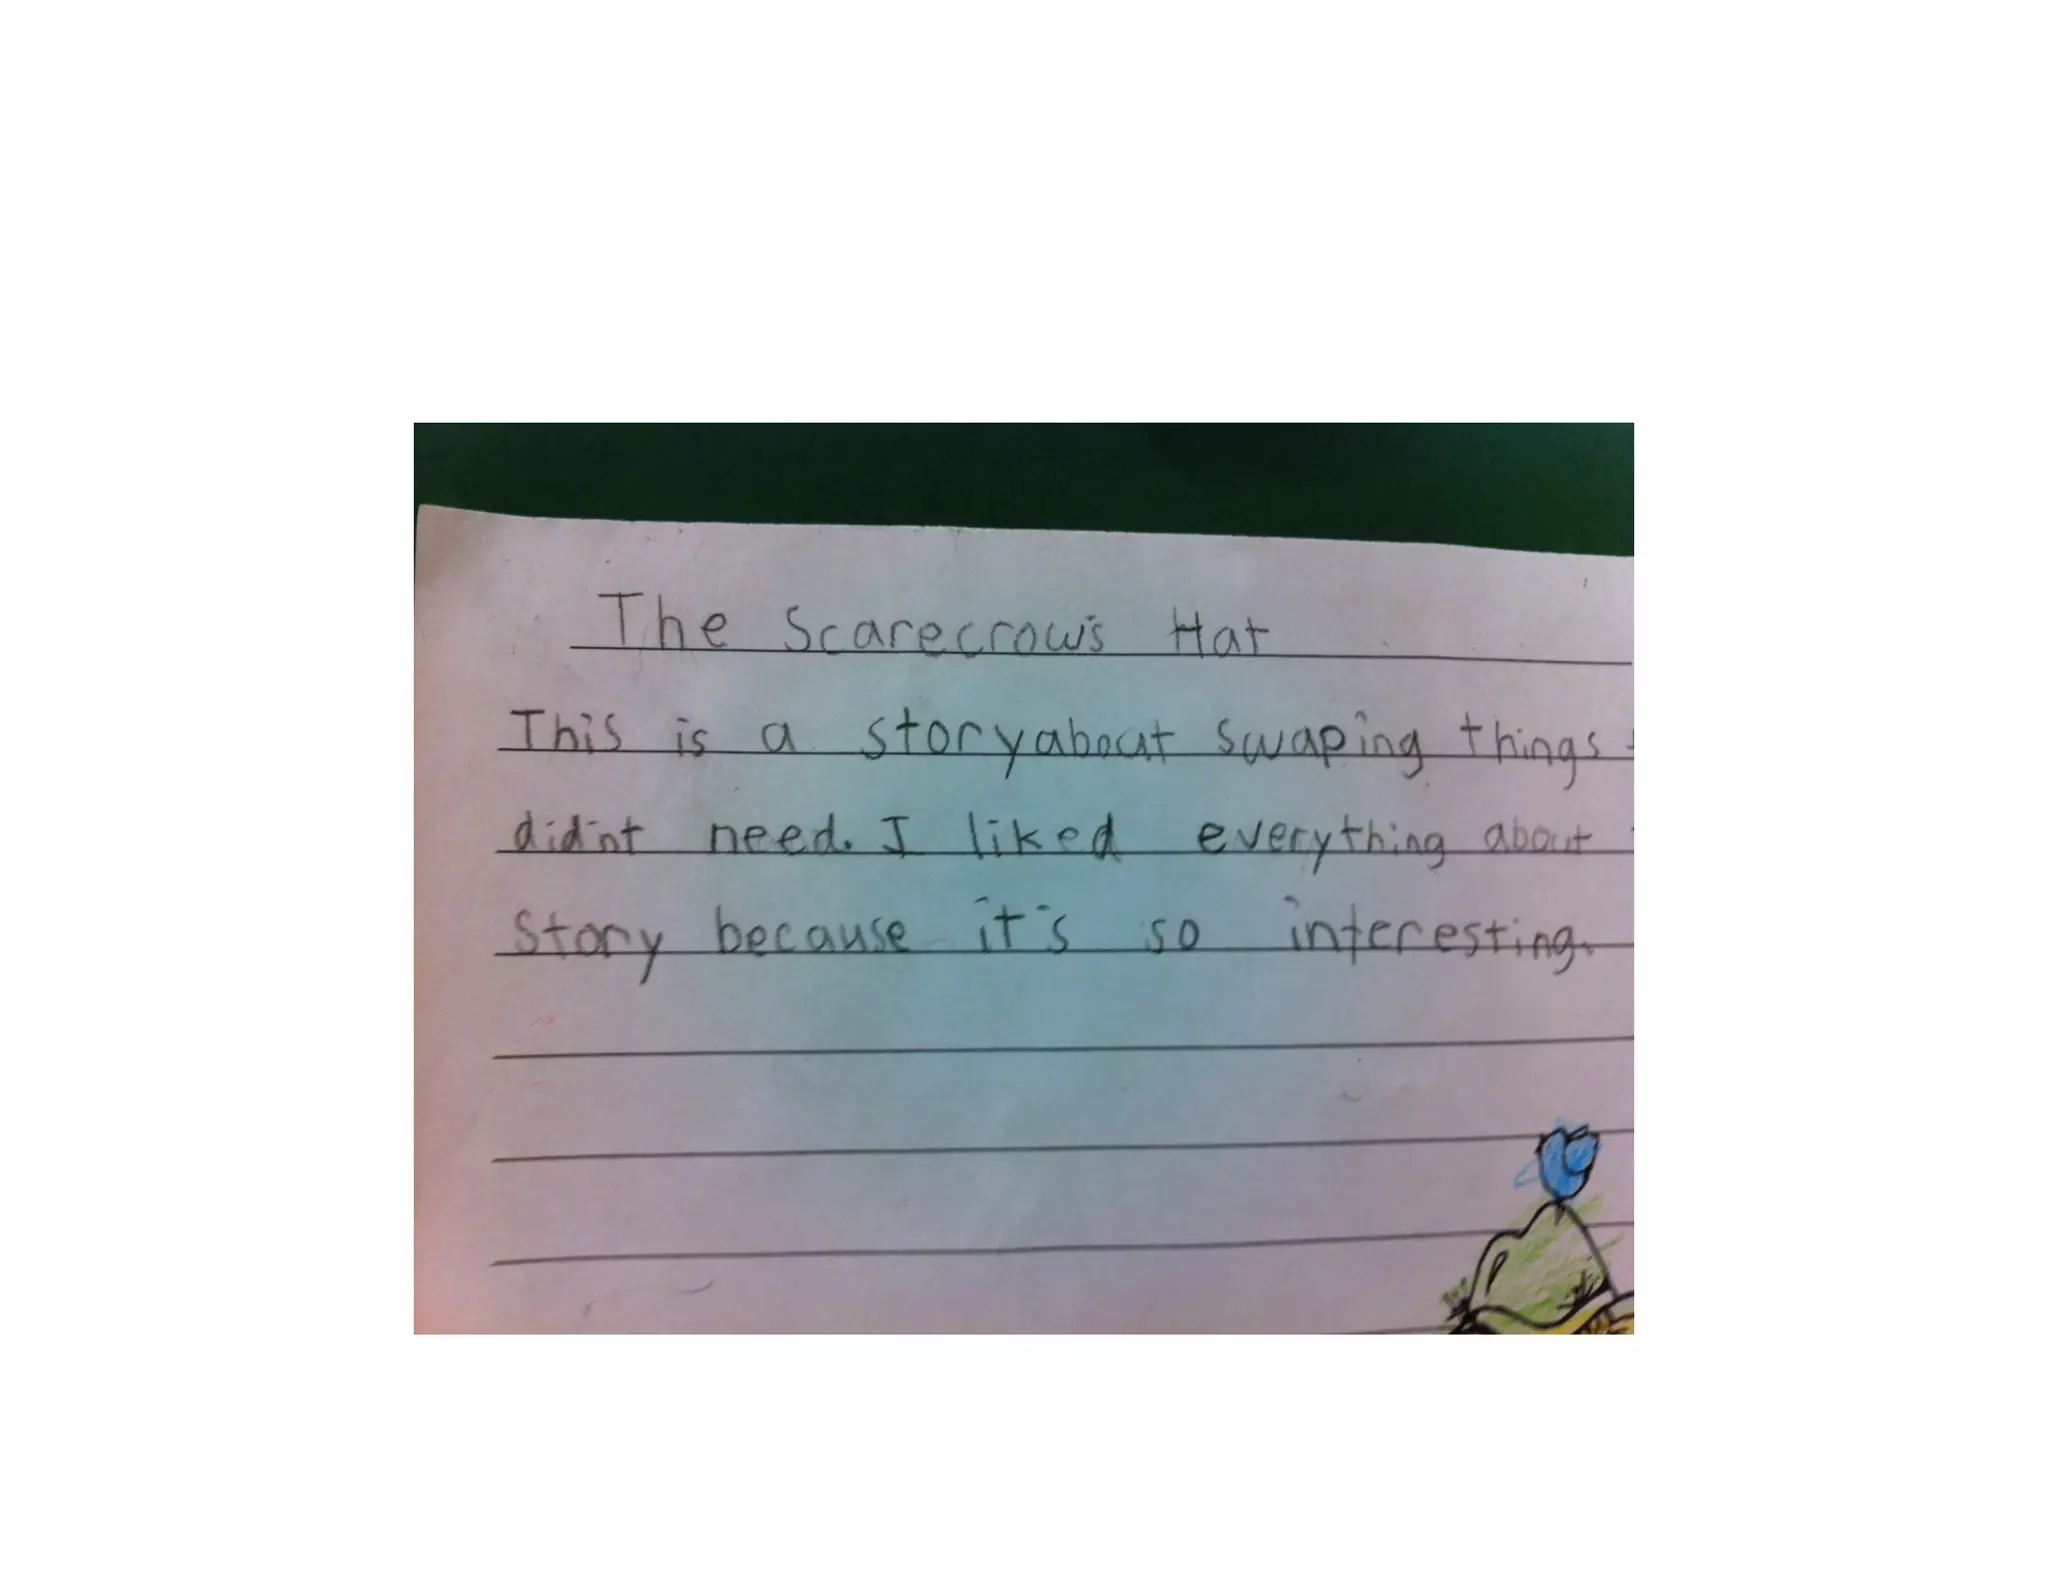 The Scarecrow's Hat
This is a story about swaping things
did'nt need. I liked everything about
story because it's so interesting.